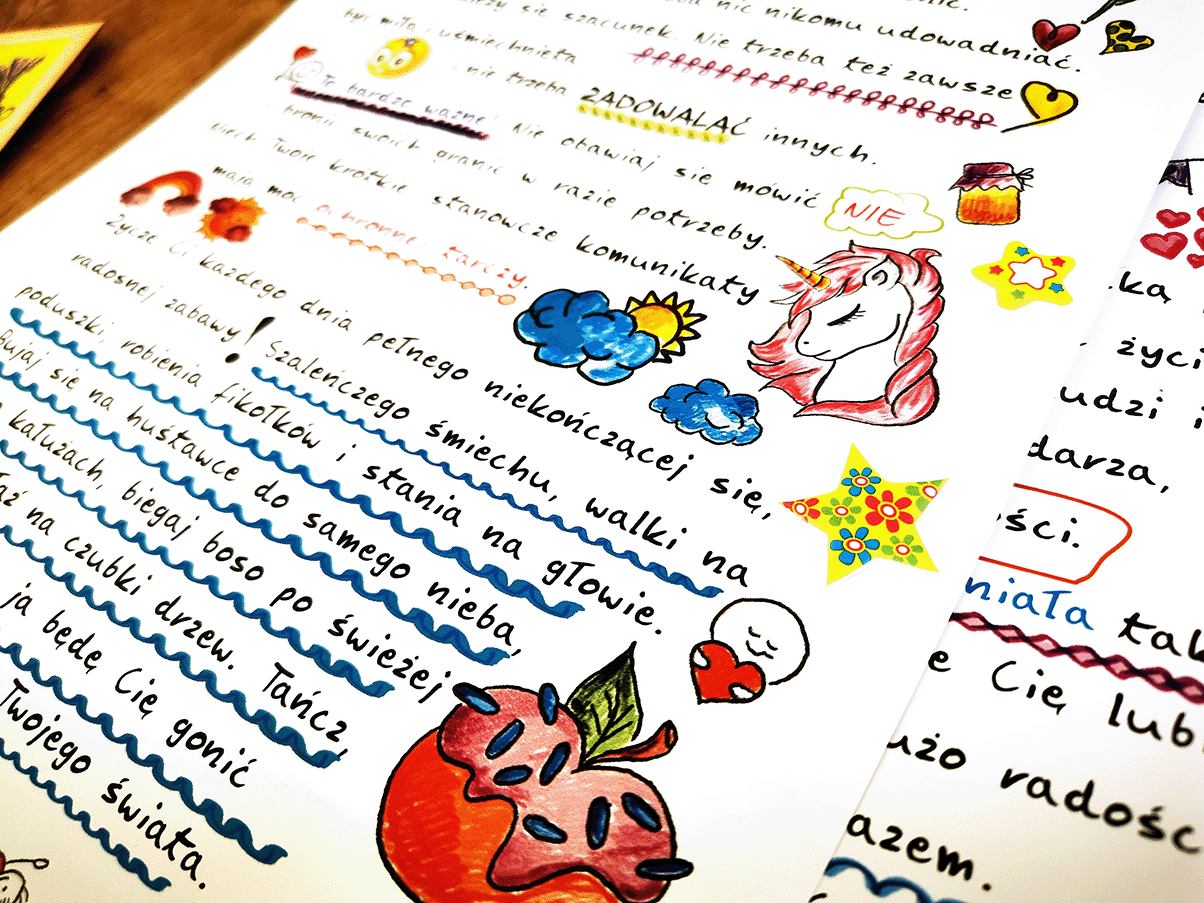 nic nikomu udowadniać.
się szacunek. Nie trzeba też zawsze
być miłą i uśmiechniętą
, nie trzeba ZADOWALAĆ innych.
To bardzo ważne! Nie obawiaj się mówić NIE
i bronić swoich granic w razie potrzeby.
Niech Twoje krótkie stanowcze komunikaty
mają moc ochronnej tarczy.
Życzę Ci każdego dnia pełnego niekończącej się,
radosnej zabawy! Szaleńczego śmiechu, walki na
poduszki, robienia fikołków i stania na głowie.
Bujaj się na huśtawce do samego nieba,
kałużach, biegaj boso po świeżej
na czubki drzew. Tańcz,
ja będę Cię gonić
Twojego świata.
ką
życi
udzi i
darza,
ości.
niała tak
e Cię lub
użo radośc
azem.